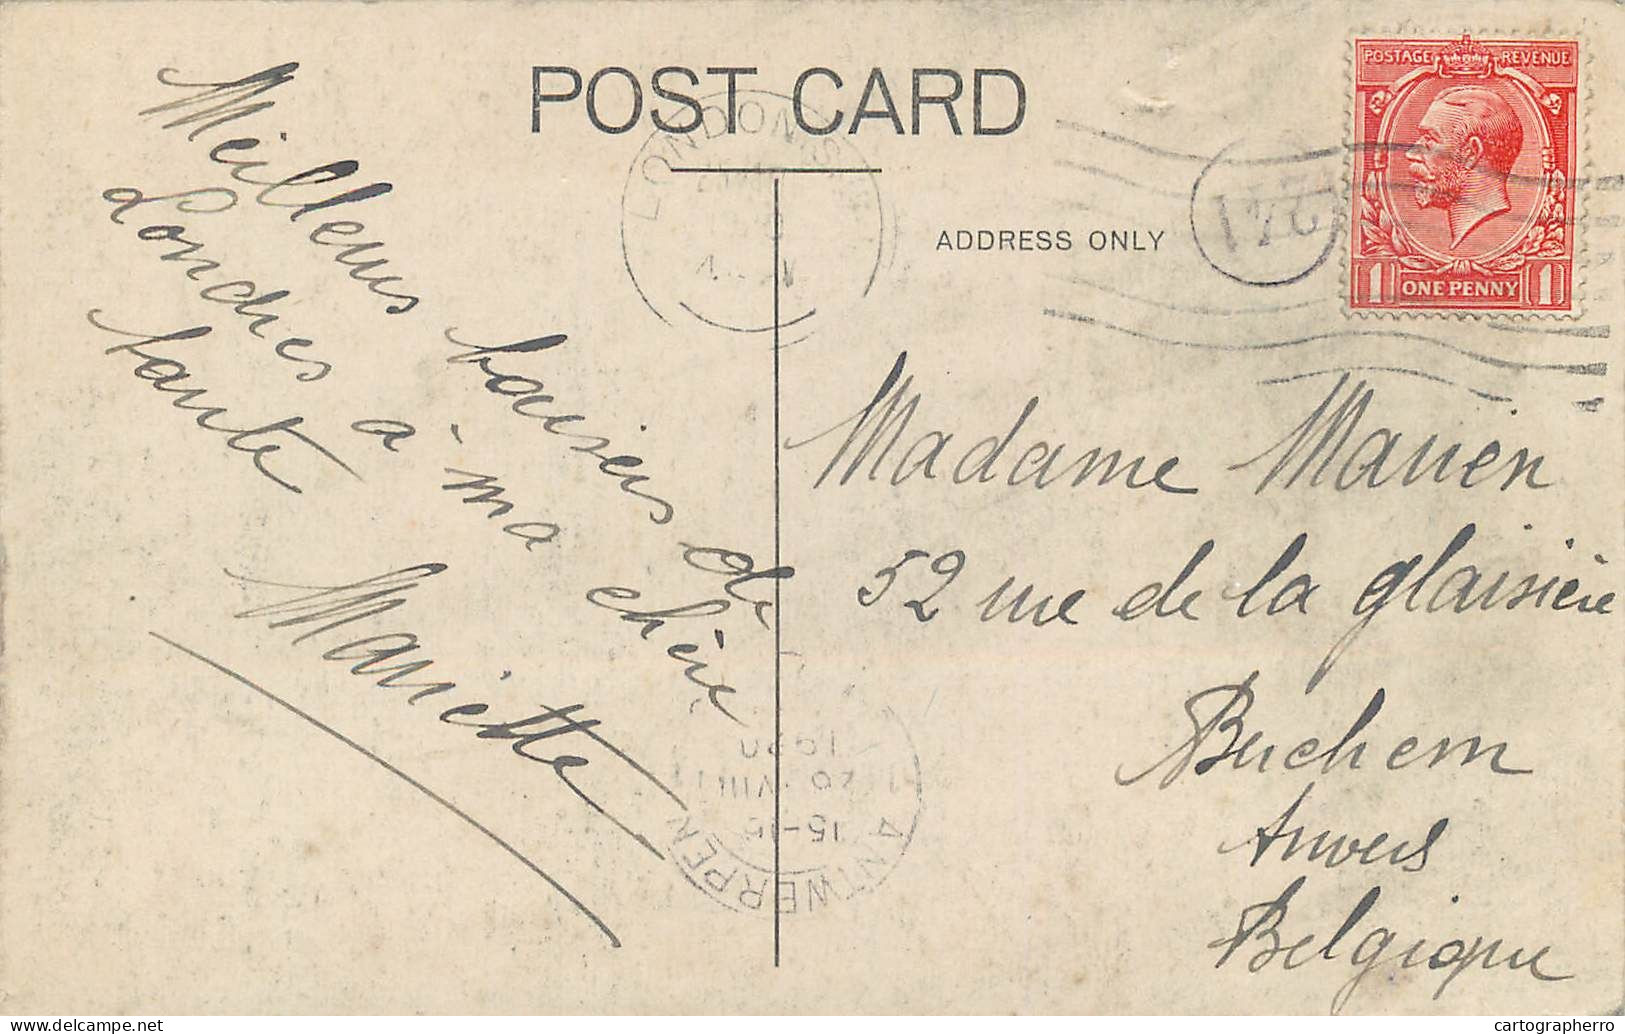 POST CARD
ADDRESS ONLY
POSTAGE REVENUE
1 ONE PENNY 1
LONDON
Meilleurs baisers de
Londres à ma chère
tante
Mariette
Madame
52 rue de la glaisière
Berchem
Anvers
Belgique
ANTWERPEN
15-
26 VIII
cartographerro
www.delcampe.net